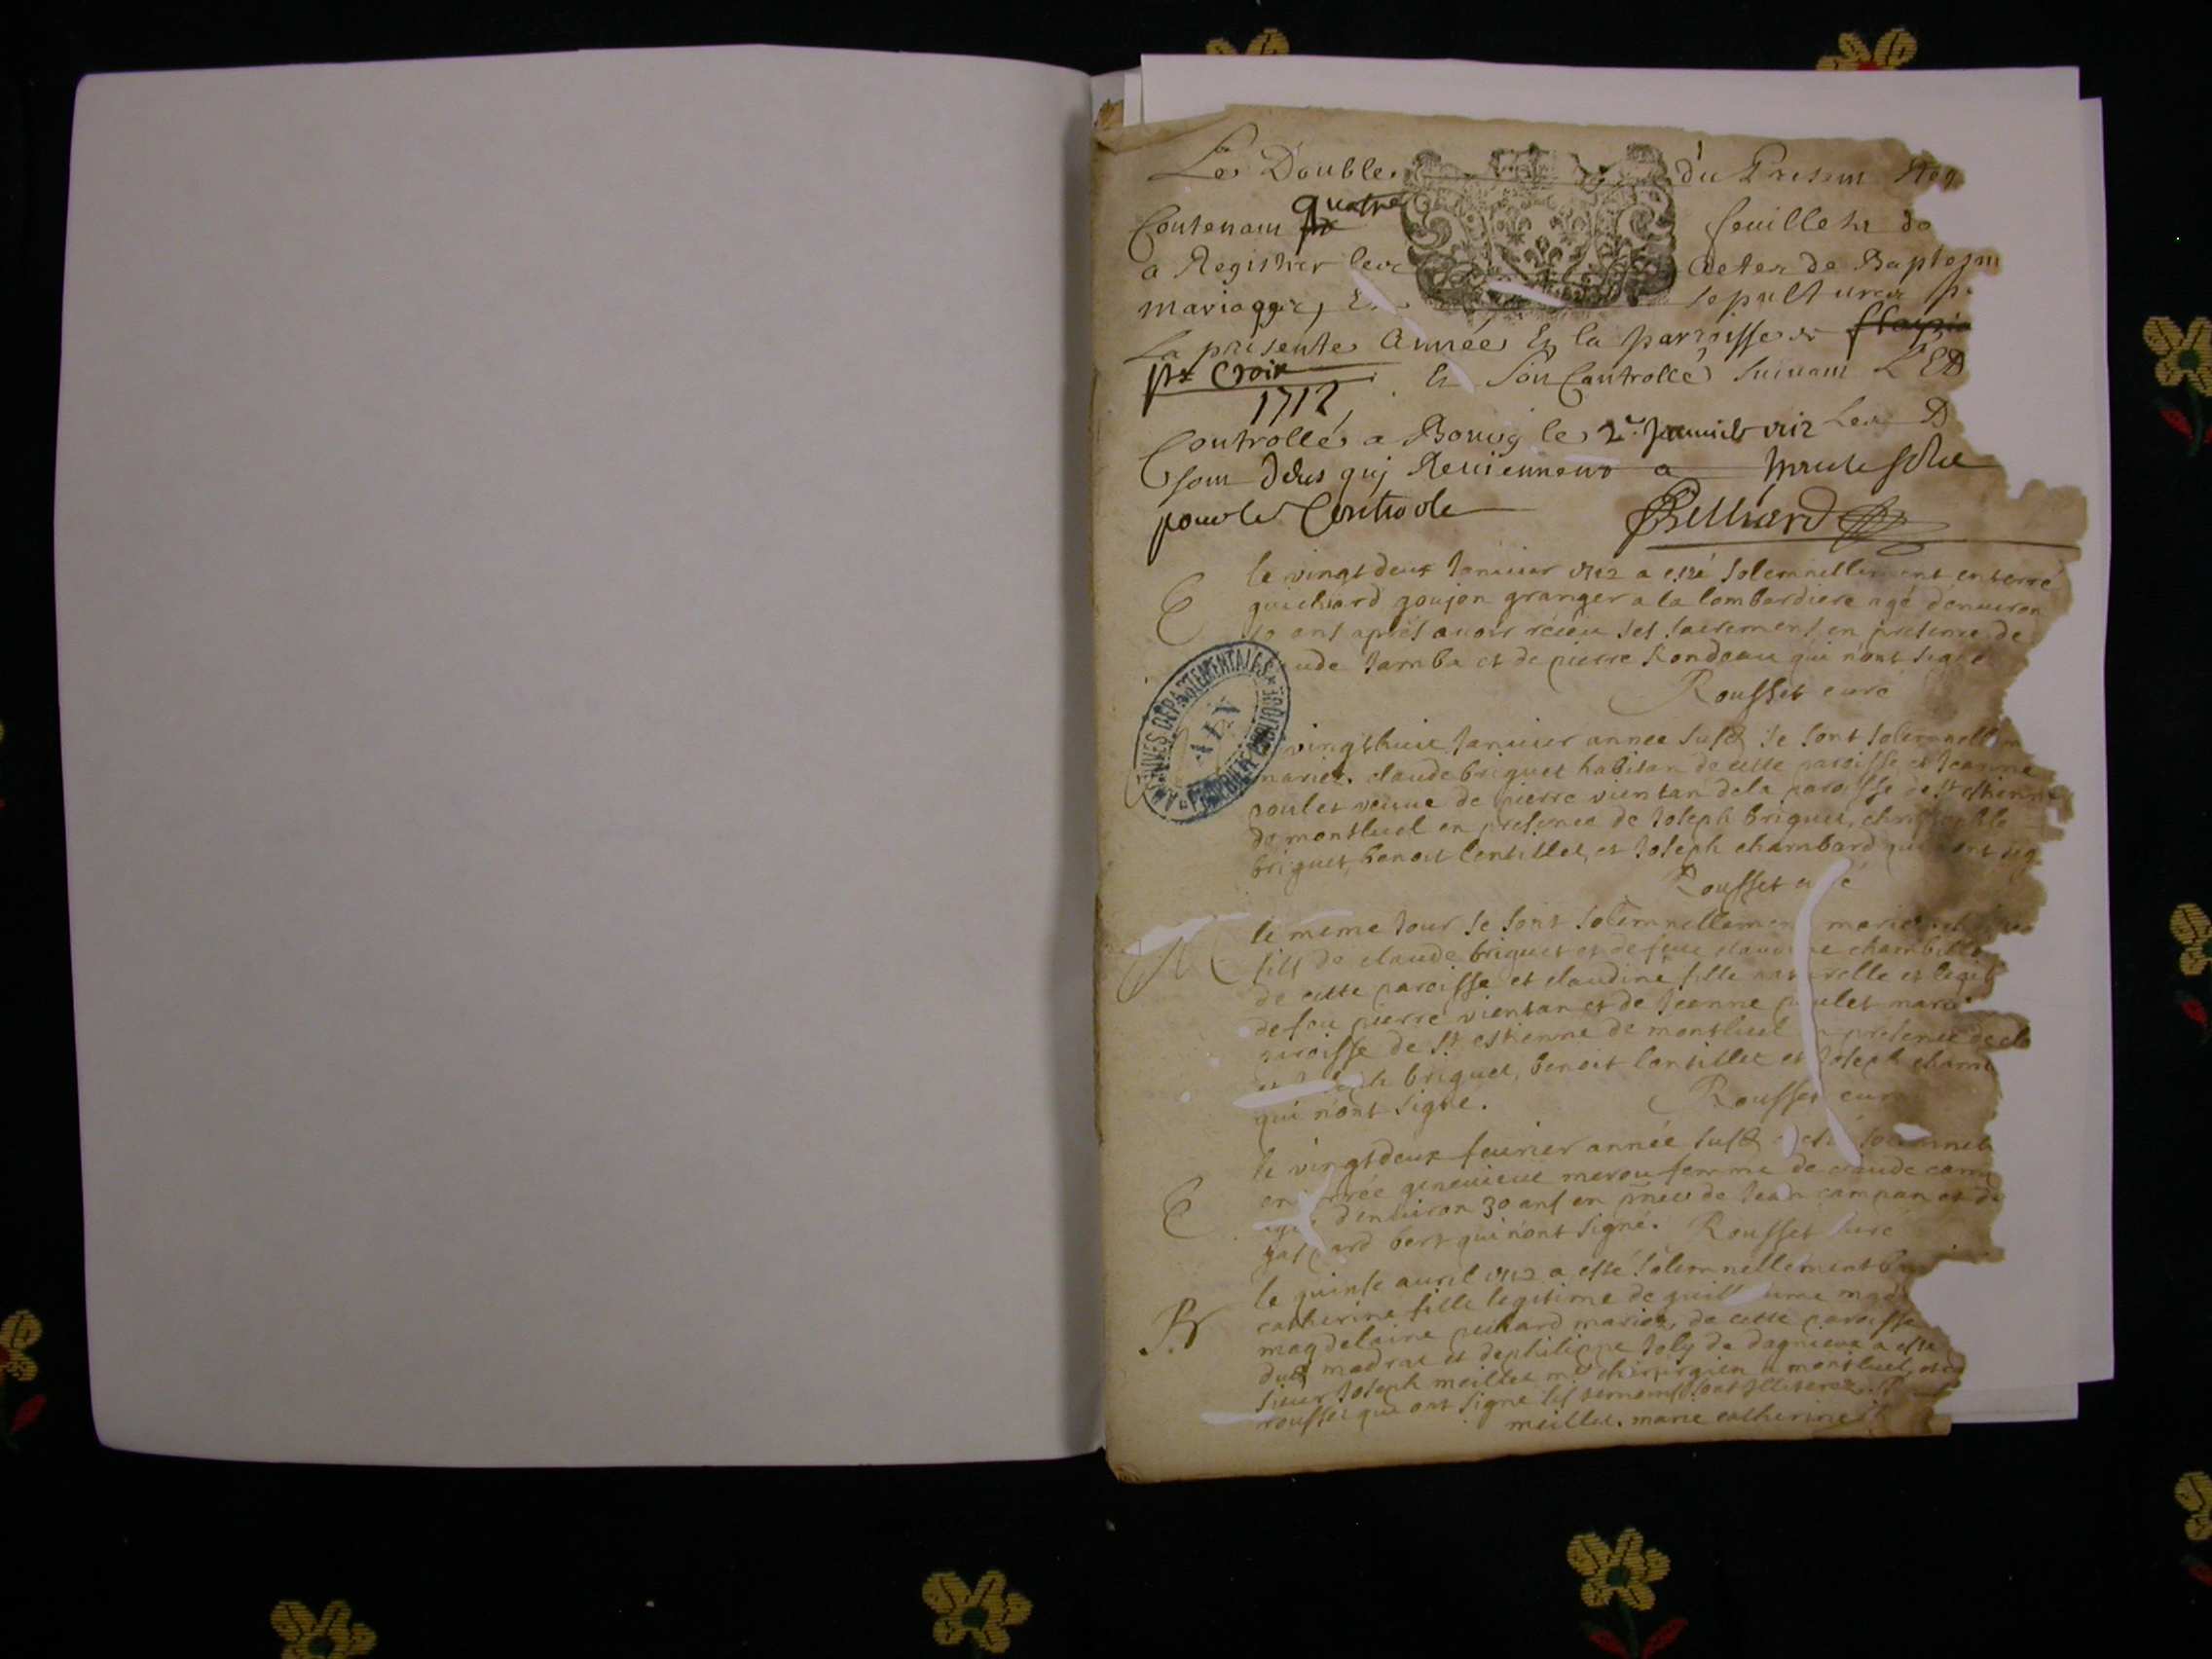 Les Doubles du Present Reg
Contenant quatre feuillets de
a Registrer les actes de Baptesm
mariages, Et sepultures p
La presente Année En la parroisse de
ste Croix Et Son Controlle Suivant L'Ed
1712
Controllé a Bourg le 2e Janvier 1712 Les D
sont deus quj Reuiennent a
pour le Controle Billiard
le vingt deux Januier 1712 a esté solemnellement enterré
guichard goujon granger a la lombardiere agé denuiron
ans après auoir réceu ses sacremens en presence de
aude Jamba et de pierre Rondeau qui n'ont signé
Rousset curé
vingthuit Januier annee susd se sont solemnellem
mariez claude briguet habitan de cette paroisse et Jeanne
poulet veuue de pierre vientan de la paroisse de st estienne
de montluel en presence de Joseph briguet, christophle
briguet, benoit lentillet, et Joseph chambard qui n'ont sig
Rousset curé
le meme Jour se sont solemnellement marie
fils de claude briguet et de feue claudine chambille
de cette paroisse et claudine fille naturelle et legit
de feu pierre vientan et de Jeanne poulet mariez
paroisse de st estienne de montluel en presence de cla
et Joseph briguet, benoit lentillet et Joseph chamb
qui n'ont signe. Rousset curé
le vingtdeux feurier année susd a esté solemnel
enterrée geneuieue merou femme de claude cam
agée denuiron 30 ans en pnce de Jean campan et de
gaspard bert qui n'ont signé. Rousset Curé
le quinse auril 1712 a esté solemnellement bap
catherine fille legitime de guillaume mad
magdelaine peuhard mariez, de cette paroisse
dud madras et de philippe Joly de dagnieux a esté
sieur Joseph meillet mtre chirurgien a montluel, et
rousset qui ont signe les temoins sont illiterez
meillet. marie catherine
ARCHIVES DÉPARTEMENTALES
AIN